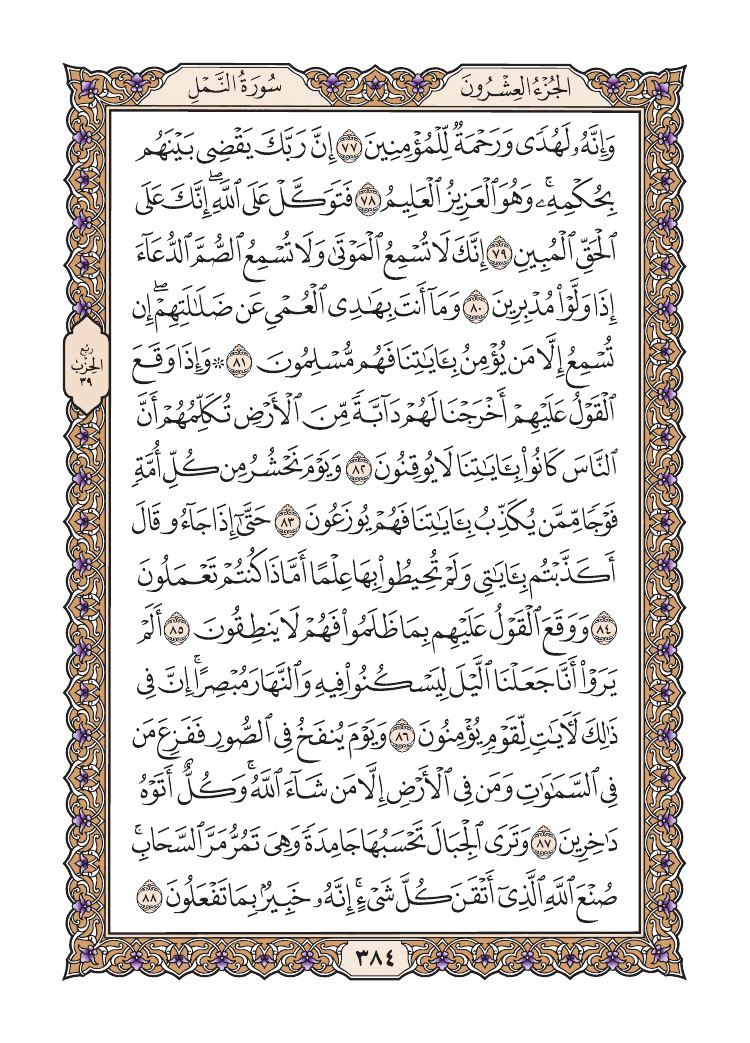 الجُزْءُ العِشْرُونَ
سُورَةُ النَّمْلِ
وَإِنَّهُۥ لَهُدٗى وَرَحۡمَةٞ لِّلۡمُؤۡمِنِينَ ٧٧ إِنَّ رَبَّكَ يَقۡضِي بَيۡنَهُم
بِحُكۡمِهِۦۚ وَهُوَ ٱلۡعَزِيزُ ٱلۡعَلِيمُ ٧٨ فَتَوَكَّلۡ عَلَى ٱللَّهِۖ إِنَّكَ عَلَى
ٱلۡحَقِّ ٱلۡمُبِينِ ٧٩ إِنَّكَ لَا تُسۡمِعُ ٱلۡمَوۡتَىٰ وَلَا تُسۡمِعُ ٱلصُّمَّ ٱلدُّعَآءَ
إِذَا وَلَّوۡاْ مُدۡبِرِينَ ٨٠ وَمَآ أَنتَ بِهَٰدِي ٱلۡعُمۡيِ عَن ضَلَٰلَتِهِمۡۖ إِن
تُسۡمِعُ إِلَّا مَن يُؤۡمِنُ بِـَٔايَٰتِنَا فَهُم مُّسۡلِمُونَ ٨١ ۞وَإِذَا وَقَعَ
ٱلۡقَوۡلُ عَلَيۡهِمۡ أَخۡرَجۡنَا لَهُمۡ دَآبَّةٗ مِّنَ ٱلۡأَرۡضِ تُكَلِّمُهُمۡ أَنَّ
ٱلنَّاسَ كَانُواْ بِـَٔايَٰتِنَا لَا يُوقِنُونَ ٨٢ وَيَوۡمَ نَحۡشُرُ مِن كُلِّ أُمَّةٖ
فَوۡجٗا مِّمَّن يُكَذِّبُ بِـَٔايَٰتِنَا فَهُمۡ يُوزَعُونَ ٨٣ حَتَّىٰٓ إِذَا جَآءُو قَالَ
أَكَذَّبۡتُم بِـَٔايَٰتِي وَلَمۡ تُحِيطُواْ بِهَا عِلۡمًا أَمَّاذَا كُنتُمۡ تَعۡمَلُونَ
٨٤ وَوَقَعَ ٱلۡقَوۡلُ عَلَيۡهِم بِمَا ظَلَمُواْ فَهُمۡ لَا يَنطِقُونَ ٨٥ أَلَمۡ
يَرَوۡاْ أَنَّا جَعَلۡنَا ٱلَّيۡلَ لِيَسۡكُنُواْ فِيهِ وَٱلنَّهَارَ مُبۡصِرًاۚ إِنَّ فِي
ذَٰلِكَ لَأٓيَٰتٖ لِّقَوۡمٖ يُؤۡمِنُونَ ٨٦ وَيَوۡمَ يُنفَخُ فِي ٱلصُّورِ فَفَزِعَ مَن
فِي ٱلسَّمَٰوَٰتِ وَمَن فِي ٱلۡأَرۡضِ إِلَّا مَن شَآءَ ٱللَّهُۚ وَكُلٌّ أَتَوۡهُ
دَٰخِرِينَ ٨٧ وَتَرَى ٱلۡجِبَالَ تَحۡسَبُهَا جَامِدَةٗ وَهِيَ تَمُرُّ مَرَّ ٱلسَّحَابِۚ
صُنۡعَ ٱللَّهِ ٱلَّذِيٓ أَتۡقَنَ كُلَّ شَيۡءٍۚ إِنَّهُۥ خَبِيرُۢ بِمَا تَفۡعَلُونَ ٨٨
رُبْع
الحِزْبِ
٣٩
٣٨٤